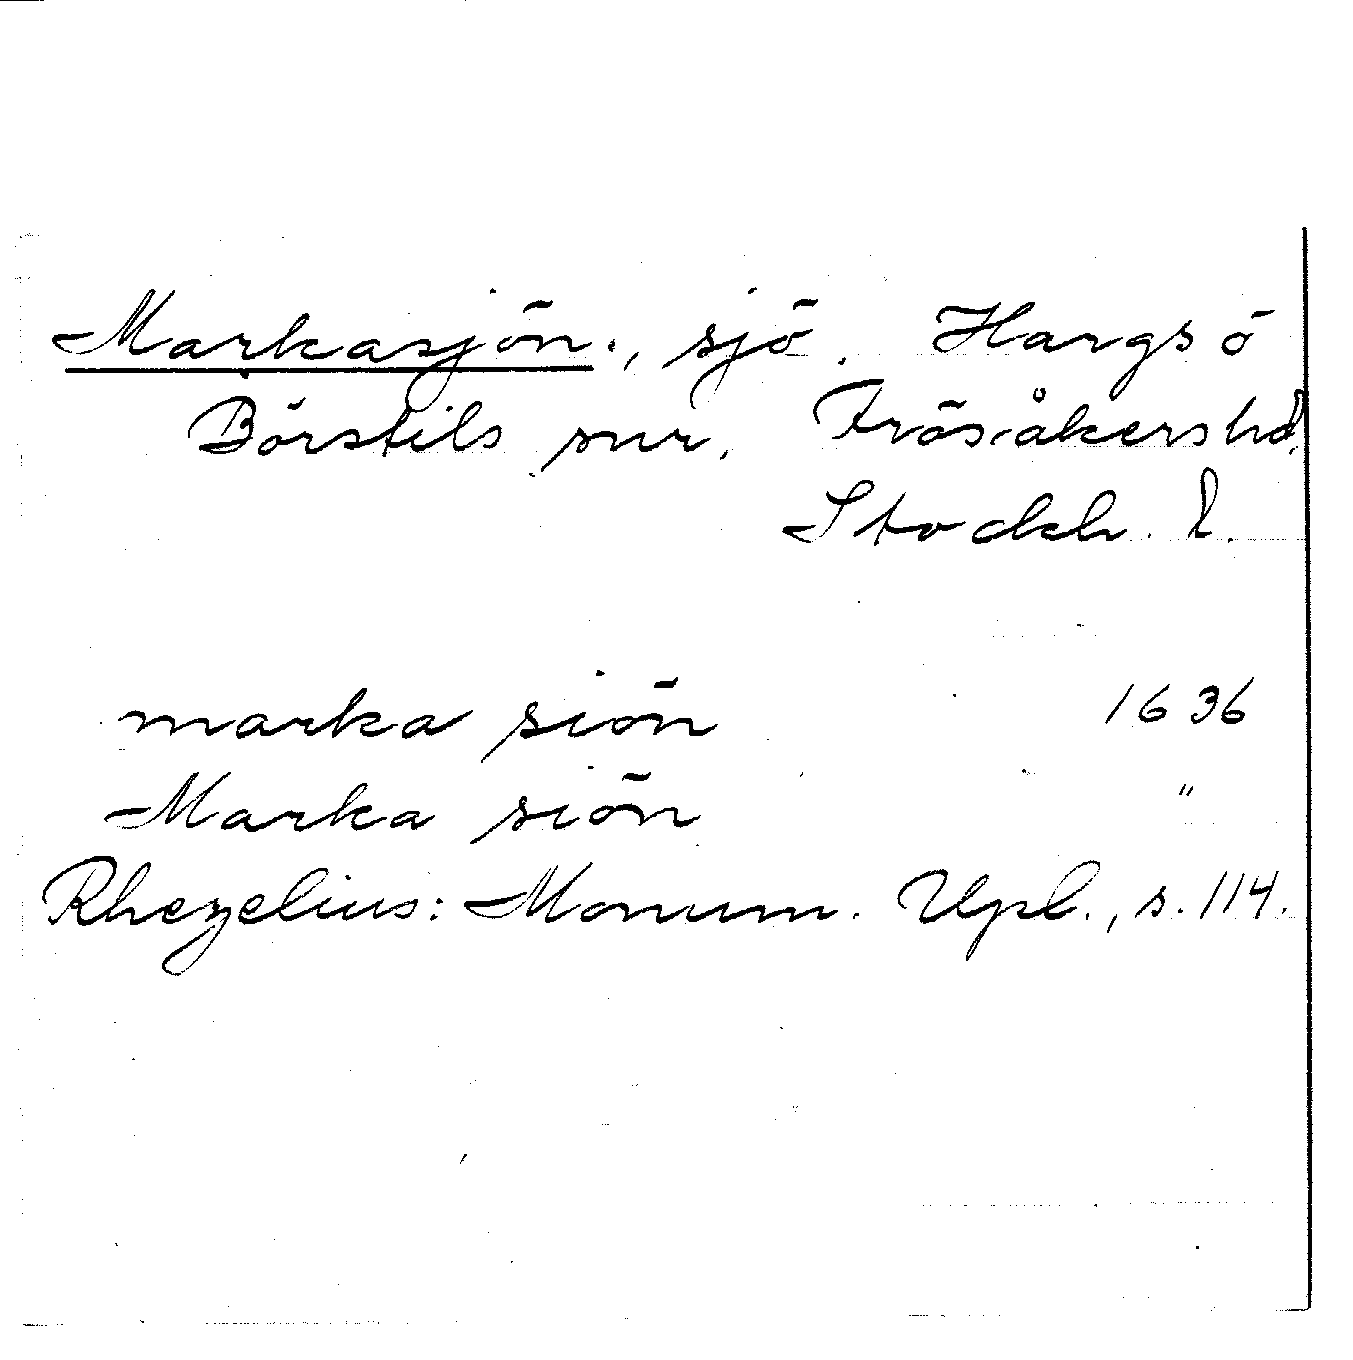 Markasjön., sjö. Hargs ö
Börstils snr, Frösåkers hd.
Stockh. l.
marka siön 1636
Marka siön "
Rhezelius: Monum. Upl., s. 114.